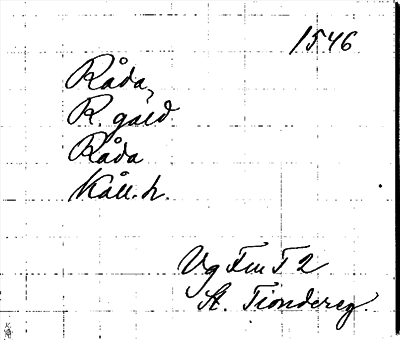 1546
Råda,
R. gäld
Råda
Kåll. h.
Vg Fm F 2
St. Tiondereg.